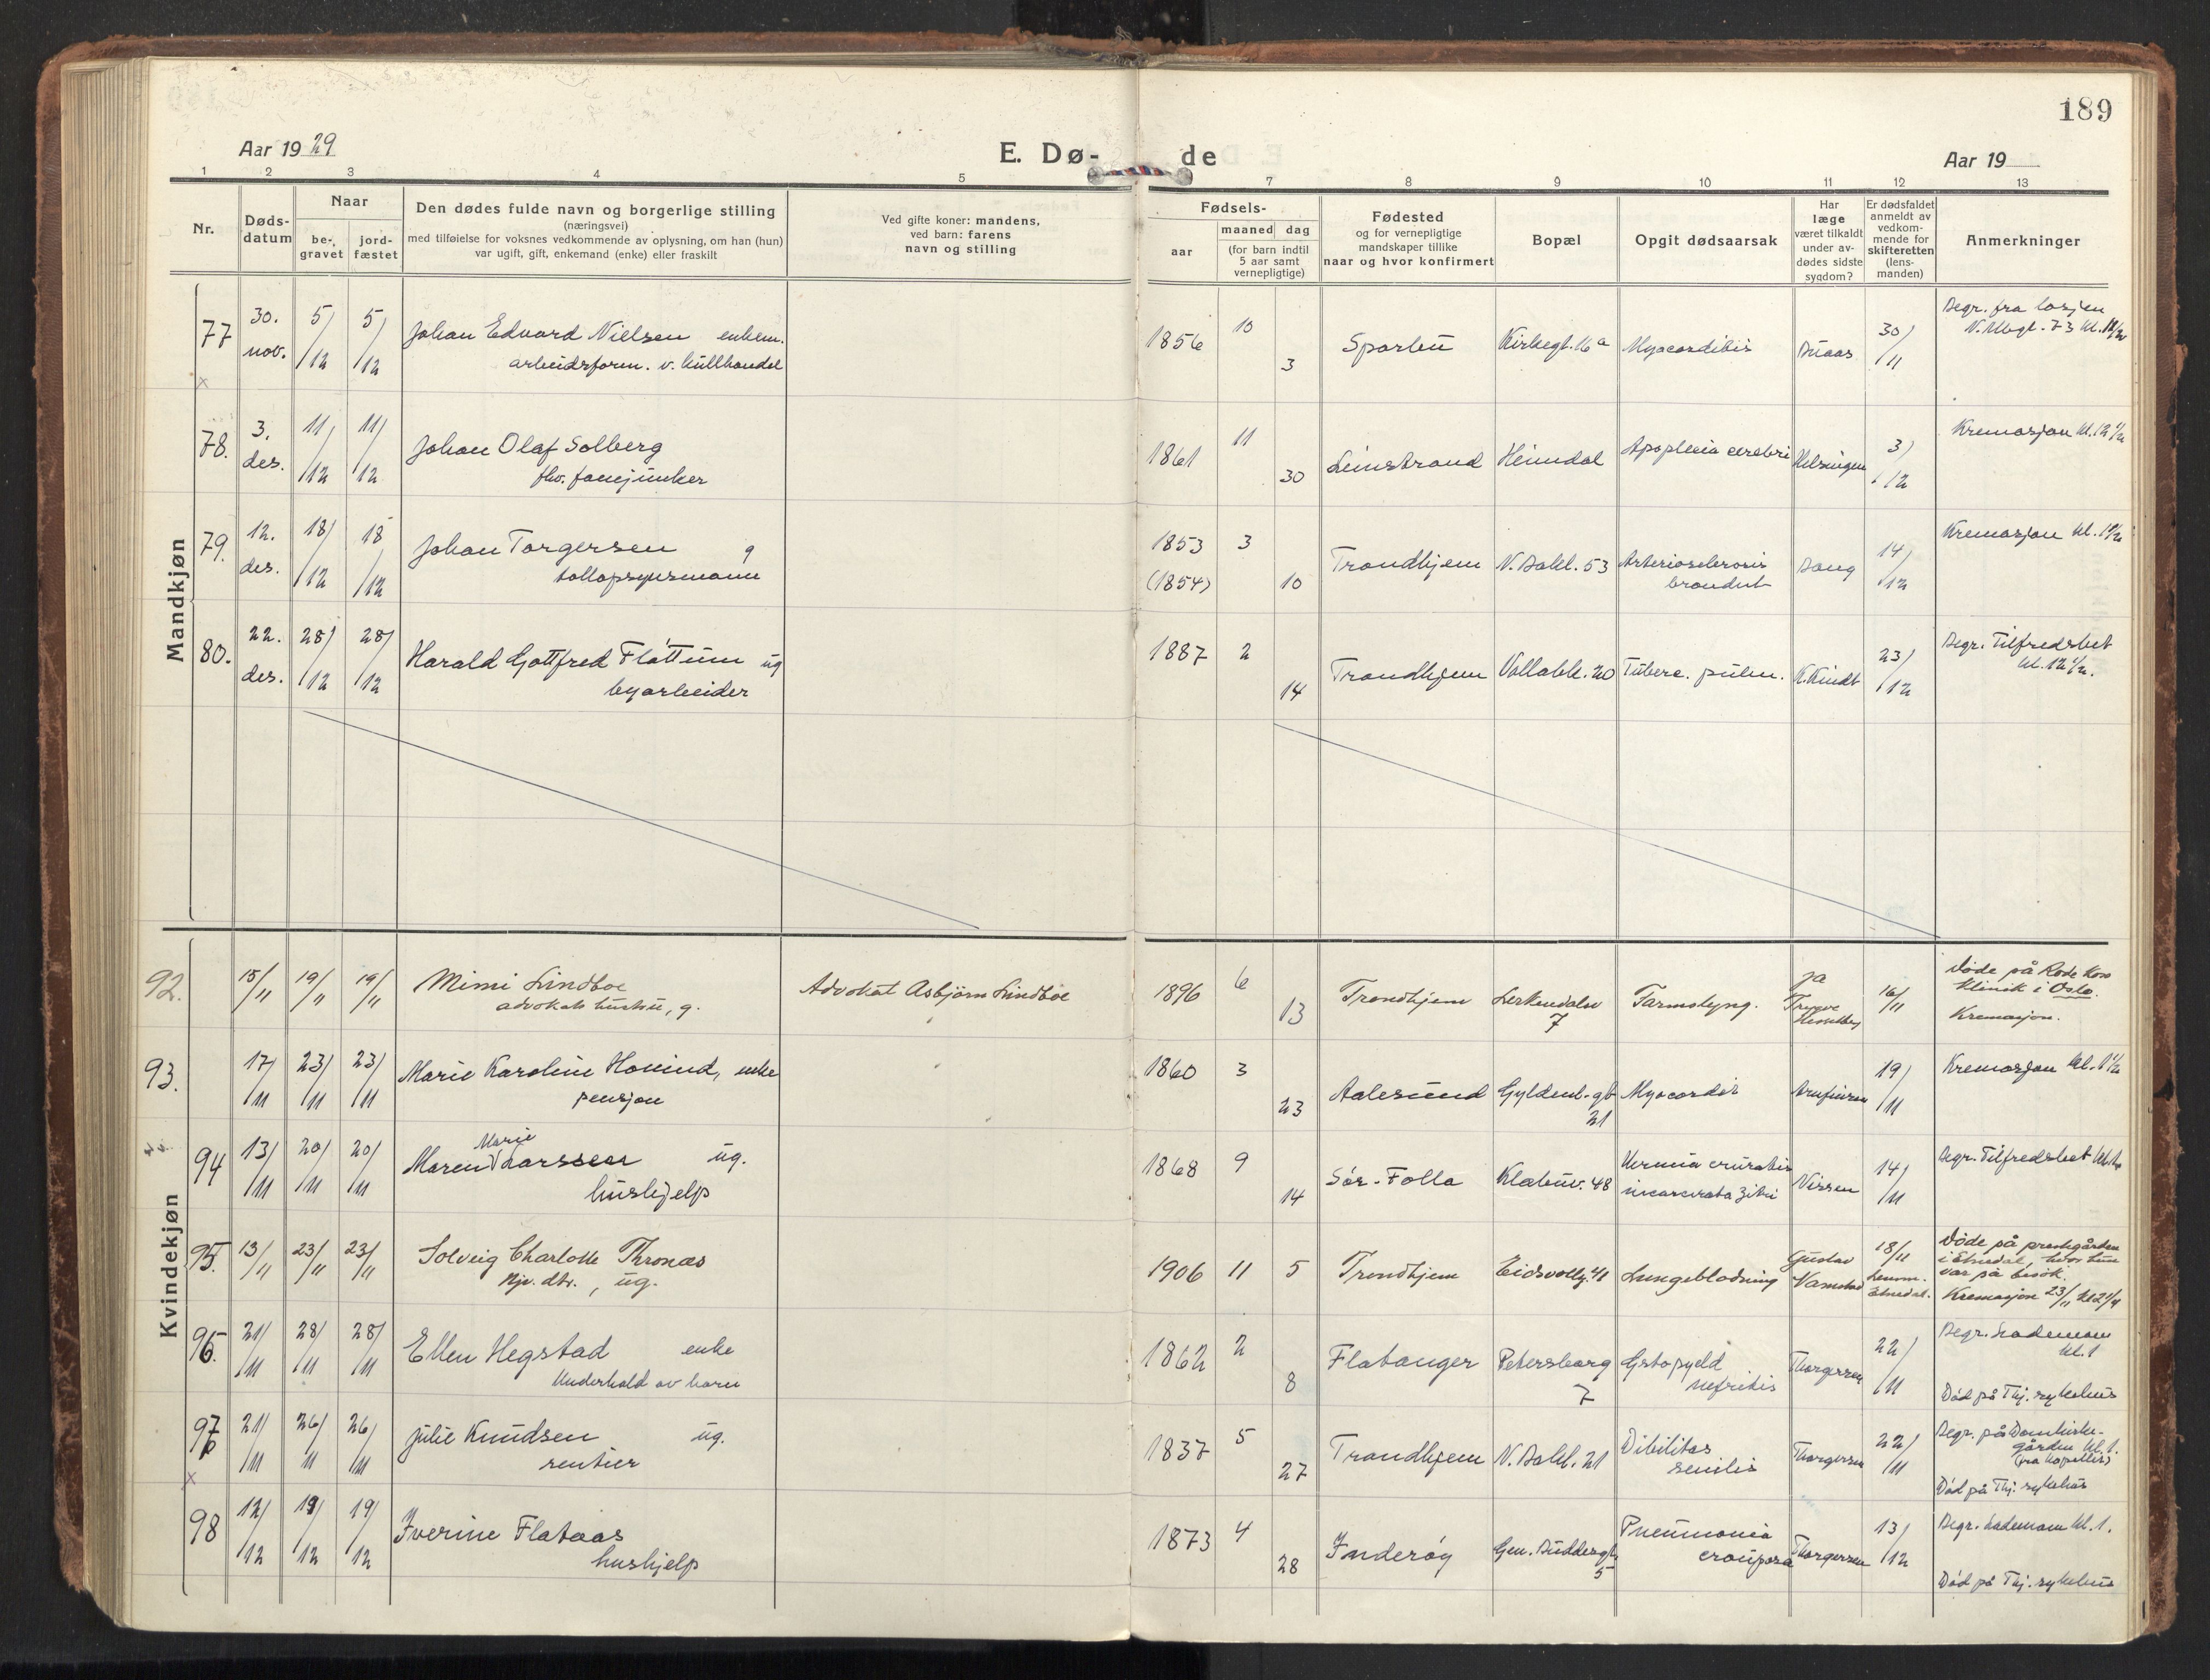 189
Aar 1929
E. Dø-
de
Aar 19
1 2 3 4 5 7 8 9 10 11 12 13
Nr.
Døds-
datum
Naar
be-
gravet
jord-
fæstet
Den dødes fulde navn og borgerlige stilling
(næringsvei)
med tilføielse for voksnes vedkommende av oplysning, om han (hun)
var ugift, gift, enkemand (enke) eller fraskilt
Ved gifte koner: mandens,
ved barn: farens
navn og stilling
Fødsels-
aar
maaned dag
(for barn indtil
5 aar samt
vernepligtige)
Fødested
og for vernepligtige
mandskaper tillike
naar og hvor konfirmert
Bopæl
Opgit dødsaarsak
Har
læge
været tilkaldt
under av-
dødes sidste
sygdom?
Er dødsfaldet
anmeldt av
vedkom-
mende for
skifteretten
(lens-
manden)
Anmerkninger
Mandkjøn
77 30. nov. 5/12 5/12 Johan Edvard Nielsen enkem.
arbeidsform. v. kullhandel
1856 10 3 Sparbu Kirkegt. 16a Myocarditis 30/11
Begr. fra losjen
78. 3. des. 11/12 11/12 Johan Olaf Solberg
fhv. fanejunker
1861 11 30 Leinstrand Heimdal Apoplexia cerebri 3/12 Kremasjon kl. 12 1/2
79. 12. des. 18/12 18/12 Johan Torgersen g
tollopsynsmann
1853 (1854) 3 10 Trondhjem N. Bakl. 53 Arteriosclerosis 14/12 Kremasjon
80. 22. des. 28/12 28/12 Harald Gottfred Flåttum ug
byarbeider
1887 2 14 Trondhjem Vollabk. 20 Tuberc. pulm. K. Kindt 23/12 Begr. Tilfredshet
kl. 12 1/2.
Kvindekjøn
92. 15/11 19/11 19/11 Mimi Lindboe
advokats hustru, g.
Advokat Asbjørn Lindboe
1896 6 13 Trondhjem Lerkendalsv
7 Tarmslyng. ja
Trygve
16/11 Døde på Røde Kors
klinik i Oslo.
Kremasjon.
93. 17/11 23/11 23/11 Marie Karoline Hovind, enke
pensjon
1860 3 23 Aalesund Gyldenl. gt
21 Myocardit 19/11 Kremasjon kl. 1 1/2
94 13/11 20/11 20/11 Maren Marie Larssen ug.
hushjelp
1868 9 14 Sør-Folla Klæbuv. 48 Hernia cruralis
incarcerata Nissen 14/11 Begr. Tilfredshet
95. 13/11 23/11 23/11 Solveig Charlotte Thronæs
Kjv. dtr., ug.
1906 11 5 Trondhjem Eidsvollg. 41 Lungeblødning Gustav
18/11
Lensm.
Etnedal.
Døde på prestegården
i Etnedal, hvor hun
var på besøk.
Kremasjon 23/11 kl 2 1/4
96. 21/11 28/11 28/11 Ellen Hegstad enke
Underhold av barn
1862 2 8 Flatanger Petersborg
7 Cystopyelo
nefritis Thorgersen 22/11 Begr. Lademoen
kl. 1
Død på Thj. sykehus
97 21/11 26/11 26/11 Julie Knudsen ug.
rentier
1837 5 27 Trondhjem N. Bakl. 21 Debilitas
senilis Thorgersen 22/11 Begr. på Domkirke-
gården kl. 1.
(fra kapellet)
Død på Thj. sykehus
98 12/12 19/12 19/12 Iverine Flataas
hushjelp
1873 4 28 Inderøy Gen. Buddesgt
5 Pneumonia
crouposa Thorgersen 13/12 Begr. Lademoen kl. 1.
Død på Thj. sykehus